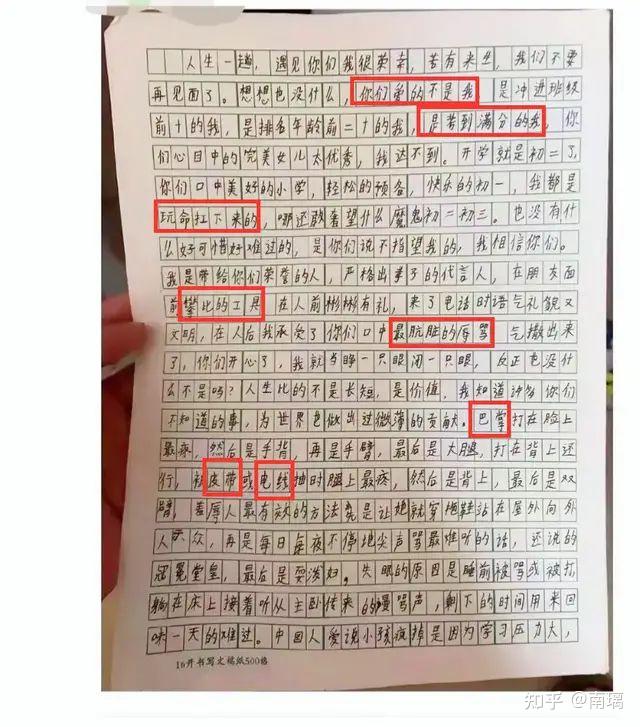 人生一趟，遇见你们我很荣幸，若有来生，我们不要
再见面了。想想也没什么，你们爱的不是我，是冲进班级
前十的我，是排名年龄前二十的我，是考到满分的我，你
们心目中的完美女儿太优秀，我达不到。开学就是初二了，
你们口中美好的小学，轻松的预备，快乐的初一，我都是
玩命扛下来的，哪还敢奢望什么魔鬼初二初三。也没有什
么好可惜好难过的，是你们说不指望我的，我相信你们。
我是带给你们荣誉的人，严格出事子的代言人，在朋友面
前攀比的工具，在人前彬彬有礼，来了电话时语气礼貌又
文明，在人后我承受了你们口中最肮脏的辱骂，气撒出来
了，你们开心了，我就当睁一只眼闭一只眼，反正也没什
么不是吗？人生比的不是长短，是价值，我知道许多你们
不知道的事，为世界也做出过微薄的贡献。巴掌打在脸上
最疼，然后是手背，再是手臂，最后是大腿，打在背上还
行，被皮带或电线抽时腿上最疼，然后是背上，最后是双
臂，羞辱人最有效的方法莫是让她就穿拖鞋站在屋外向外
人示众，再是每日每夜不停地尖声骂最难听的话，还说的
冠冕堂皇，最后是耍泼妇。失眠的原因是睡前被骂或被打，
躺在床上接着听从主卧传来的谩骂声，剩下的时间用来回
味一天的难过。中国人爱说小孩疯掉是因为学习压力大，
16开书写文稿纸500格
知乎 @南璃